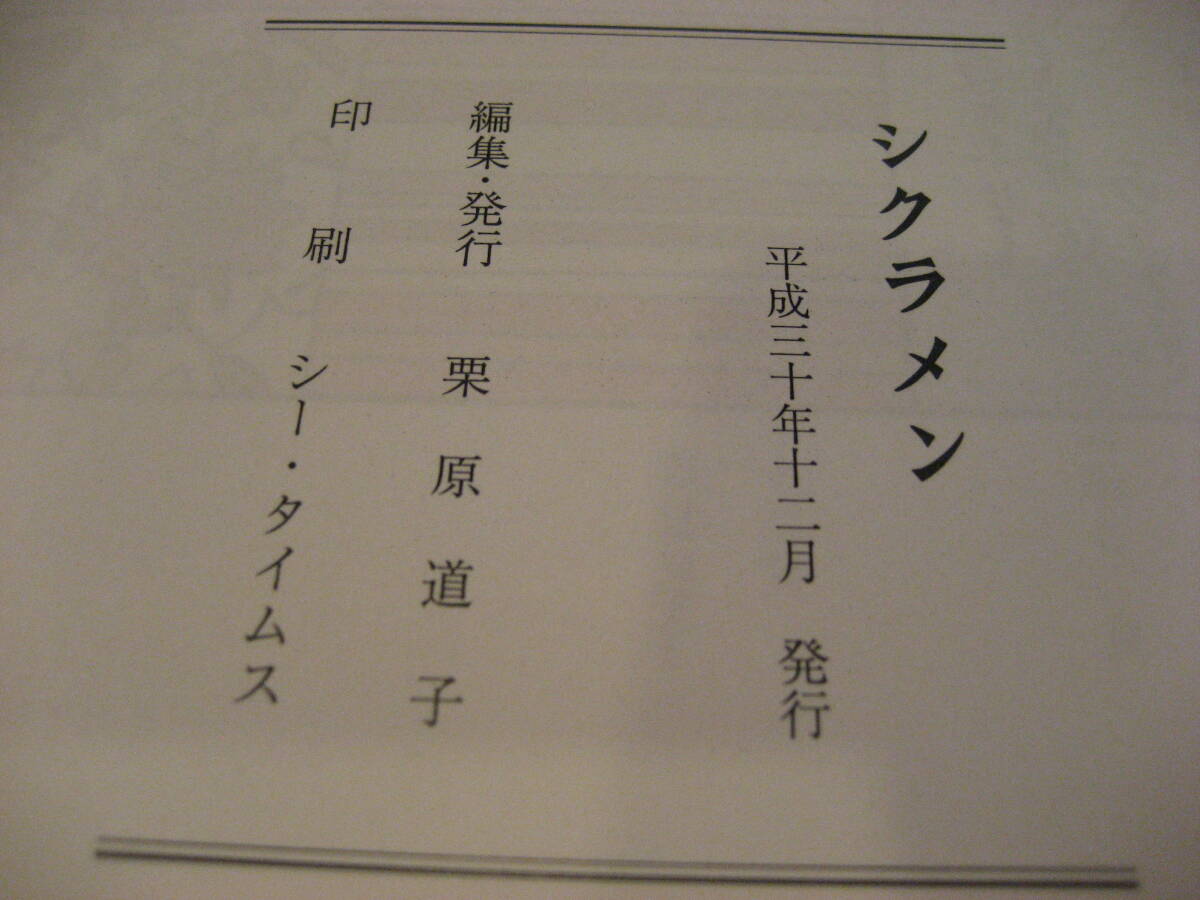 シクラメン
平成三十年十二月 発行
編集・発行 栗原道子
印刷 シー・タイムス